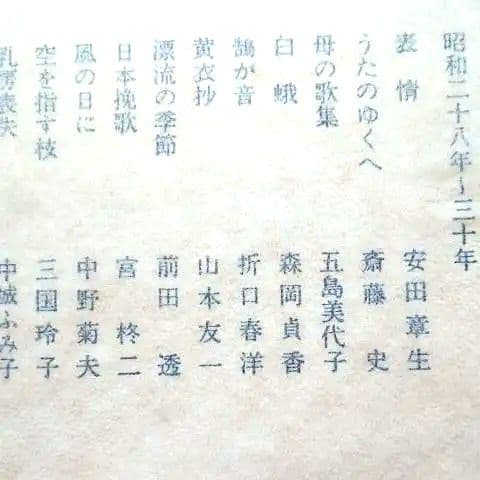 昭和二十八年〜三十年
表情 安田章生
うたのゆくへ 斎藤史
母の歌集 五島美代子
白蛾 森岡貞香
鵠が音 折口春洋
黄衣抄 山本友一
漂流の季節 前田透
日本挽歌 宮柊二
風の日に 中野菊夫
空を指す枝 三国玲子
乳房喪失 中城ふみ子